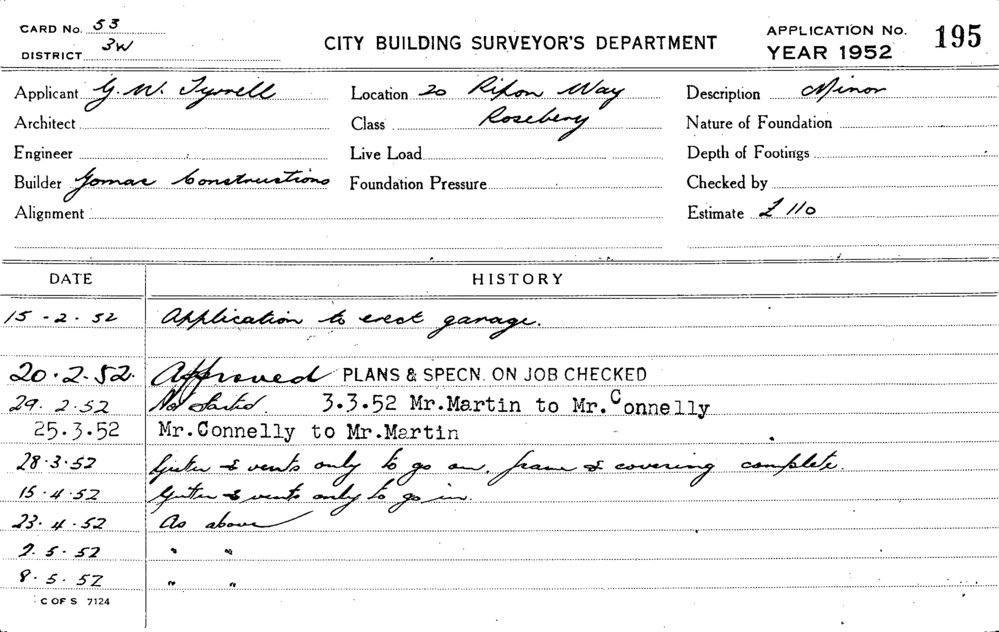 CARD No. 53
DISTRICT 3W
CITY BUILDING SURVEYOR'S DEPARTMENT
APPLICATION No. 195
YEAR 1952
Applicant G. W. Tyrrell Location 20 Ripon Way Description Minor
Architect Class Rosebery Nature of Foundation
Engineer Live Load Depth of Footings
Builder Gomac Constructions Foundation Pressure Checked by
Alignment Estimate £ 110
DATE HISTORY
15-2.52 Application to erect garage.
20.2.52. Approved PLANS & SPECN. ON JOB CHECKED
29.2.52 Not Started. 3.3.52 Mr.Martin to Mr.Connelly
25.3.52 Mr.Connelly to Mr.Martin
28.3.52 Gutter & vents only to go on, frame & covering complete.
15.4.52 Gutter & vents only to go in.
23.4.52 As above
2.5.52 " "
8.5.52 " "
C OF S 7124